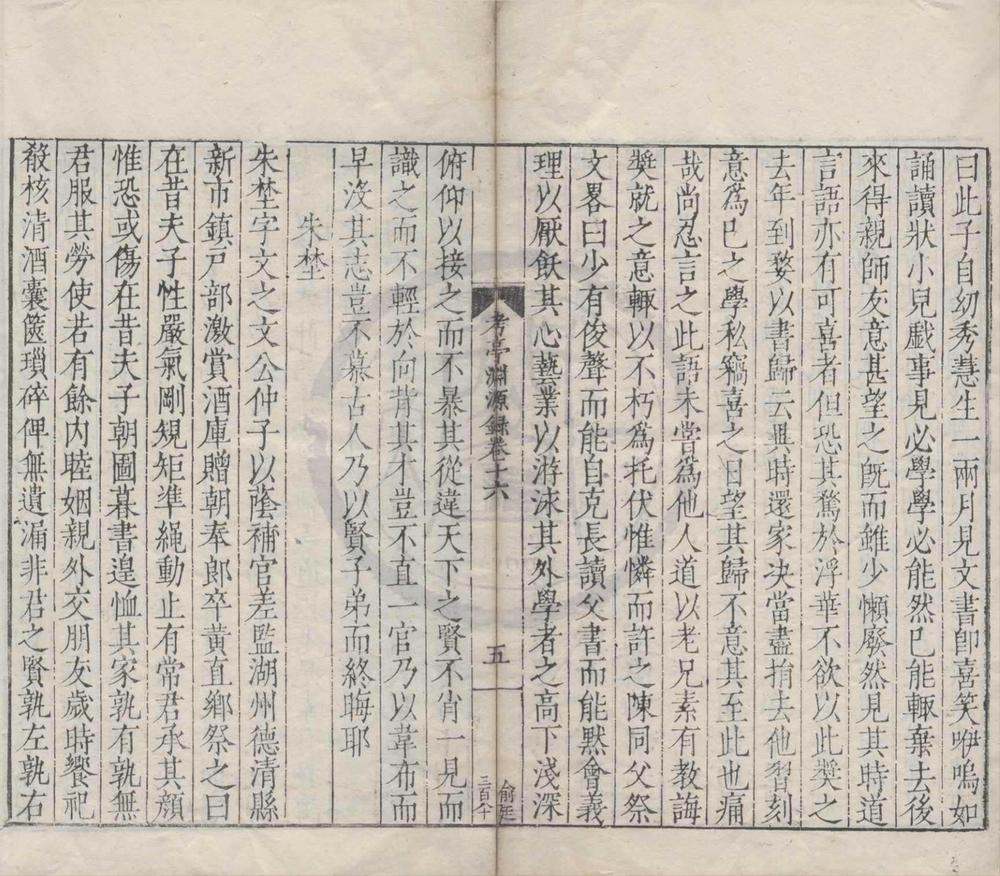 曰此子自幼秀慧生一兩月見文書卽喜笑咿嗚如
誦讀狀小兒戲事見必學學必能然已能輙棄去後
來得親師友意甚望之旣而雖少懶廢然見其時道
言語亦有可喜者但恐其騖於浮華不欲以此奬之
去年到婺以書歸云異時還家決當盡捐去他習刻
意爲已之學私竊喜之日望其歸不意其至此也痛
哉尚忍言之此語未嘗爲他人道以老兄素有教誨
奬就之意輙以不朽爲托伏惟憐而許之陳同父祭
文畧曰少有俊聲而能自克長讀父書而能默會義
理以厭飫其心藝業以游泳其外學者之高下淺深
考亭淵源錄卷十六
五
俞廷
三百八十
俯仰以接之而不暴其從違天下之賢不肖一見而
識之而不輕於向背其才豈不直一官乃以韋布而
早沒其志豈不慕古人乃以賢子弟而終晦耶
朱埜
朱埜字文之文公仲子以蔭補官差監湖州德清縣
新市鎮戶部激賞酒庫贈朝奉郎卒黃直鄉祭之曰
在昔夫子性嚴氣剛規矩準繩動止有常君承其顔
惟恐或傷在昔夫子朝圖暮書遑恤其家孰有孰無
君服其勞使若有餘內睦姻親外交朋友歲時饗祀
殽核清酒囊篋瑣碎俾無遺漏非君之賢孰左孰右